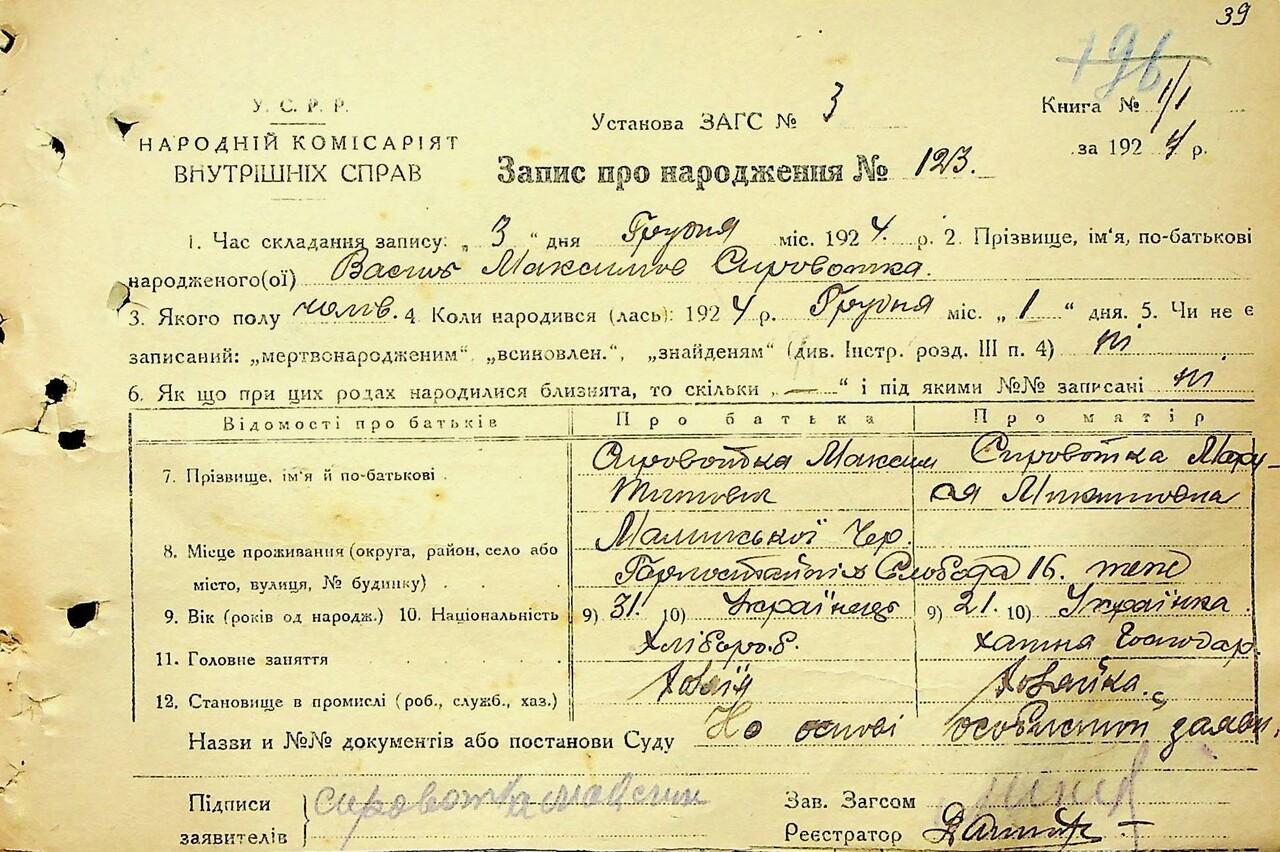 39
196
У. С. Р. Р.
НАРОДНІЙ КОМІСАРІЯТ
ВНУТРІШНІХ СПРАВ
Установа ЗАГС № 3
Книга № 1/1
за 1924 р.
Запис про народження № 123.
1. Час складання запису: „ 3 “ дня Грудня міс. 1924. р. 2. Прізвище, ім'я, по-батькові
народженого(ої) Василь Максимов Сировотка.
3. Якого полу чолов. 4. Коли народився (лась): 1924 р. Грудня міс. „ 1 “ дня. 5. Чи не є
записаний: „мертвонародженим“, „всиновлен.“, „знайденям“ (див. Інстр. розд. III п. 4) ні
6. Як що при цих родах народилися близнята, то скільки „ — “ і під якими №№ записані ні
Відомості про батьків Про батька Про матір
7. Прізвище, ім'я й по-батькові Сировотка Максим Сировотка Мару-
ся Микитовна
8. Місце проживання (округа, район, село або Малинської Чер.
місто, вулиця, № будинку) Слобода 16.
9. Вік (років од народж.) 10. Національність 9) 31. 10) Українець 9) 21. 10) Українка
11. Головне заняття Хлібороб. хатня Господар.
12. Становище в промислі (роб., служб., хаз.)
Назви и №№ документів або постанови Суду На основі особистой заяви.
Підписи заявителів Сировотка Максим
Зав. Загсом
Реєстратор